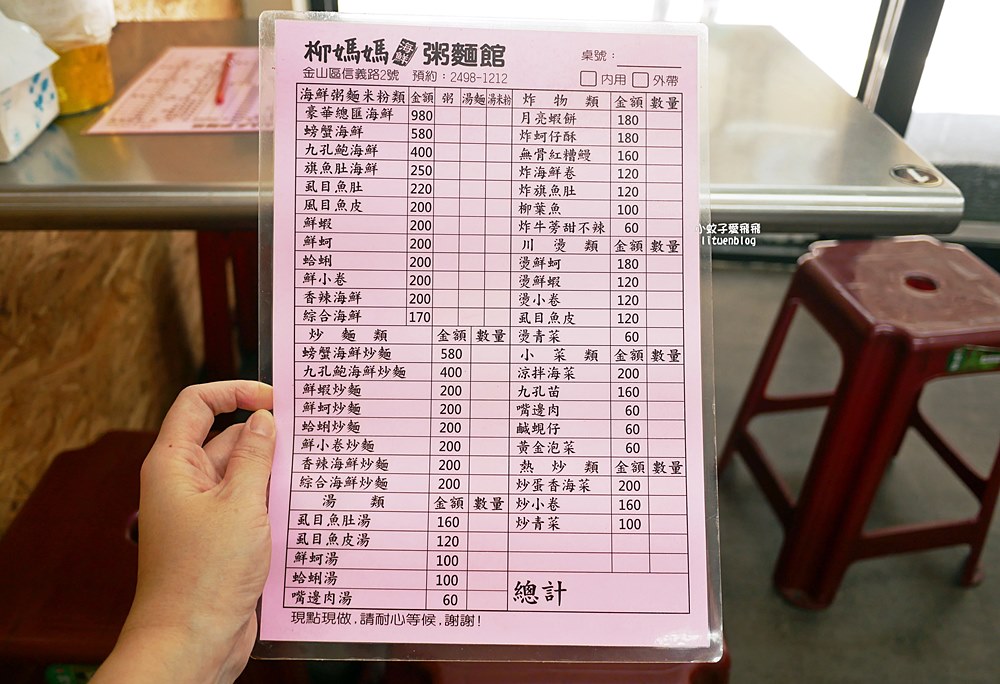 柳媽媽 海鮮 粥麵館
金山區信義路2號 預約：2498-1212
桌號：
內用 外帶
海鮮粥麵米粉類 金額 粥 湯麵 湯米粉
豪華總匯海鮮 980
螃蟹海鮮 580
九孔鮑海鮮 400
旗魚肚海鮮 250
虱目魚肚 220
風目魚皮 200
鮮蝦 200
鮮蚵 200
蛤蜊 200
鮮小卷 200
香辣海鮮 200
綜合海鮮 170
炒麵類 金額 數量
螃蟹海鮮炒麵 580
九孔鮑海鮮炒麵 400
鮮蝦炒麵 200
鮮蚵炒麵 200
蛤蜊炒麵 200
鮮小卷炒麵 200
香辣海鮮炒麵 200
綜合海鮮炒麵 200
湯類 金額 數量
虱目魚肚湯 160
虱目魚皮湯 120
鮮蚵湯 100
蛤蜊湯 100
嘴邊肉湯 60
炸物類 金額 數量
月亮蝦餅 180
炸蚵仔酥 180
無骨紅糟鰻 160
炸海鮮卷 120
炸旗魚肚 120
柳葉魚 100
炸牛蒡甜不辣 60
川燙類 金額 數量
燙鮮蚵 180
燙鮮蝦 120
燙小卷 120
虱目魚皮 120
燙青菜 60
小菜類 金額 數量
涼拌海菜 200
九孔苗 160
嘴邊肉 60
鹹蜆仔 60
黃金泡菜 60
熱炒類 金額 數量
炒蛋香海菜 200
炒小卷 160
炒青菜 100
總計
現點現做，請耐心等候，謝謝！
小蚊子愛飛飛
lituenblog